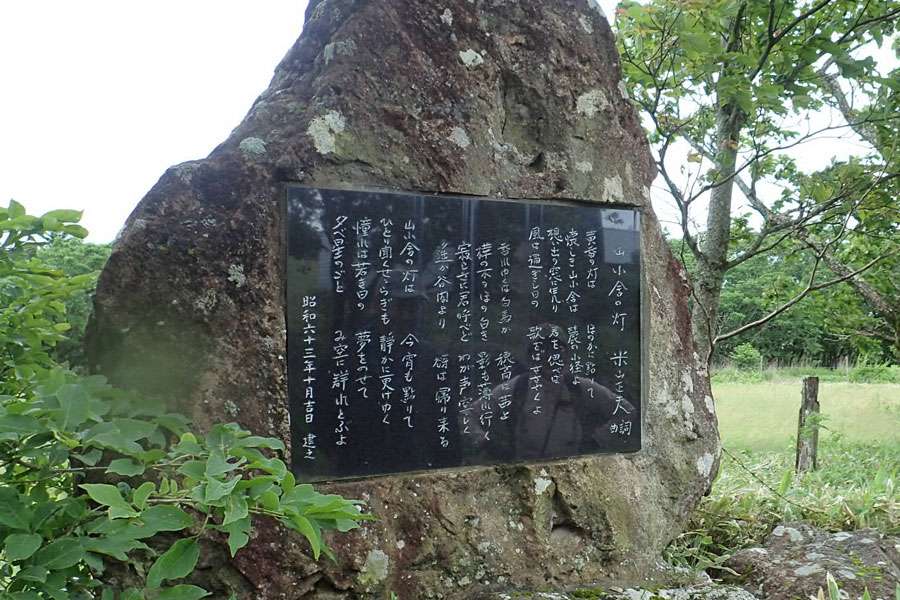 山小舎の灯 米山正夫 詞曲
黄昏の灯は ほのかに點りて
懐しき山小舎は 麓の小径よ
想出の窓に凭り 君を偲べば
風は過ぎし日の 歌をばささやくよ
暮れゆくは白馬か 穂高は茜よ
樺の木のほの白き 影も薄れ行く
寂しさに君呼べど わが声空しく
遥か谷間より 谺は帰り来る
山小舎の灯は 今宵も點りて
ひとり聞くせせらぎも 静かに更けゆく
憧れは若き日の 夢をのせて
夕べ星のごと み空に群れとぶよ
昭和六十三年十月吉日 建之